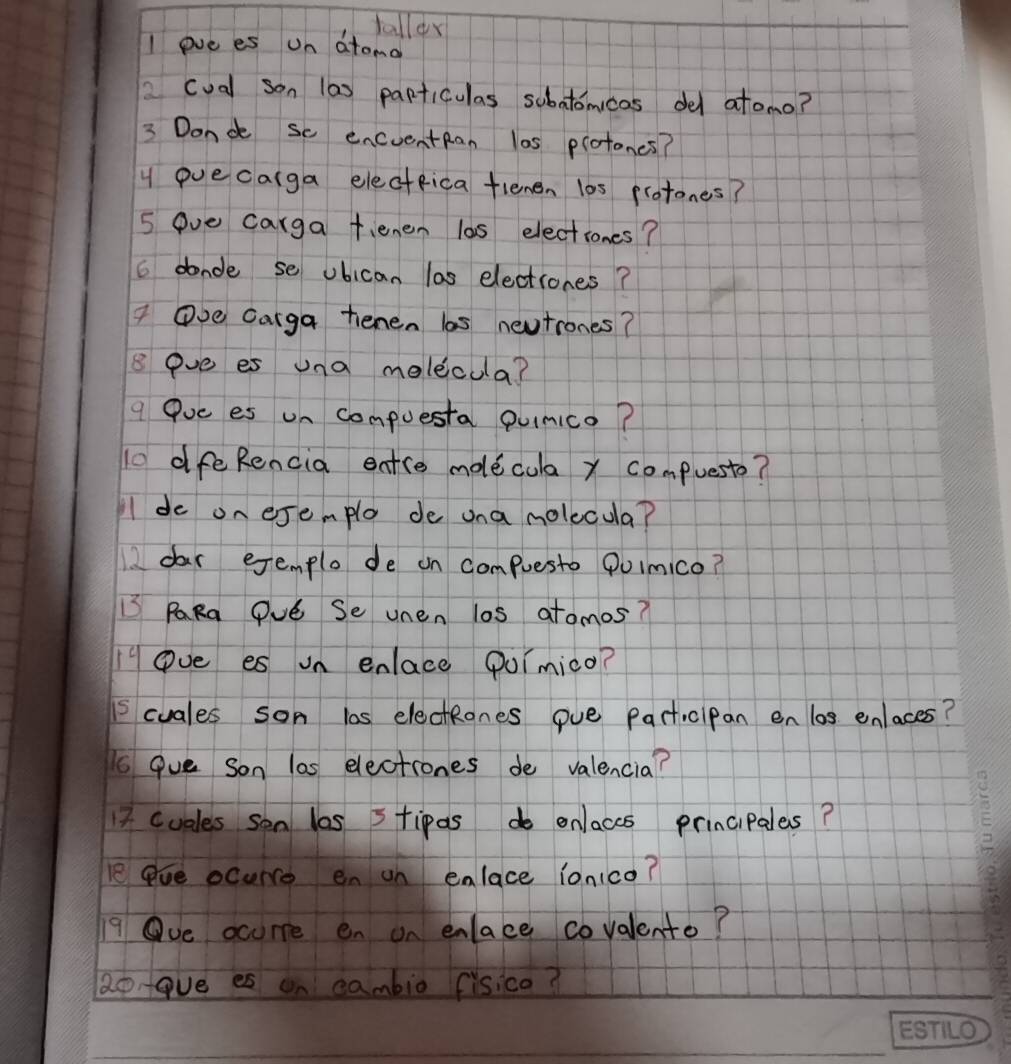 Taller
1 que es un átomo
2 cual son las particulas subatómicas del atomo?
3 Donde se encuentran los protones?
4 que carga electrica tienen los protones?
5 Que carga tienen los electrones?
6 donde se ubican los electrones?
7 Que carga tienen los neutrones?
8 que es una molécula?
9 Que es un compuesta Quimico?
10 dfeRencia entre molécula y compuesto?
11 de un ejemplo de una molecula?
12 dar ejemplo de un compuesto Quimico?
13 PaRa Qué Se unen los atomos?
14 Que es un enlace Químico?
15 cuales son los electRones que participan en los enlaces?
16 Que son los electrones de valencia?
17 cuales son los 3 tipos de enlaces principales?
18 que ocurre en un enlace íonico?
19 Que ocurre en un enlace covalente?
20 que es un cambio físico?
ESTILO
Tu marca